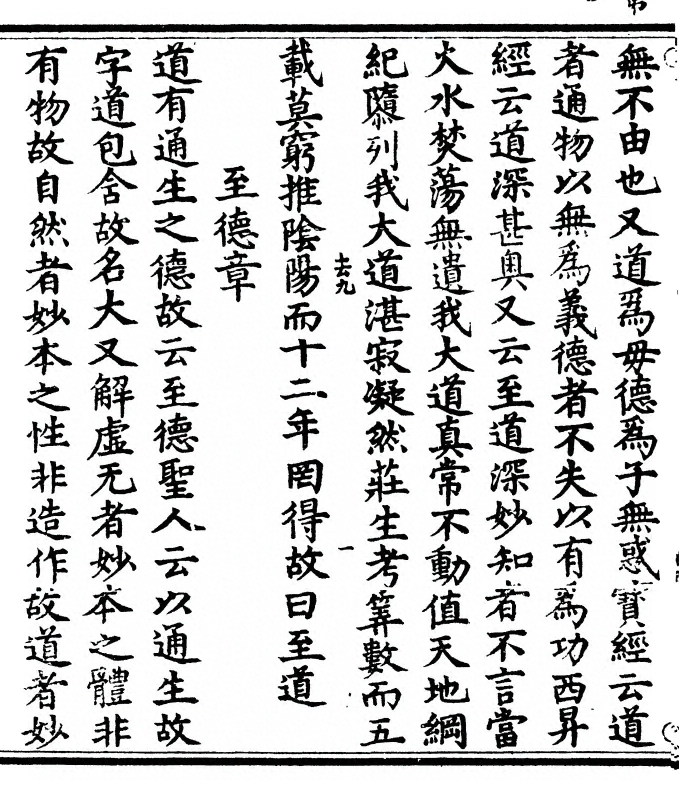 無不由也又道爲母德爲子無惑寶經云道
者通物以無爲義德者不失以有爲功西昇
經云道深甚奥又云至道深妙知者不言當
火水焚蕩無遺我大道真常不動值天地綱
紀隳列我大道湛寂凝然莊生考筭數而五
去九
一
載莫窮推陰陽而十二年罔得故曰至道
至德章
道有通生之德故云至德聖人云以通生故
字道包含故名大又解虛无者妙本之體非
有物故自然者妙本之性非造作故道者妙